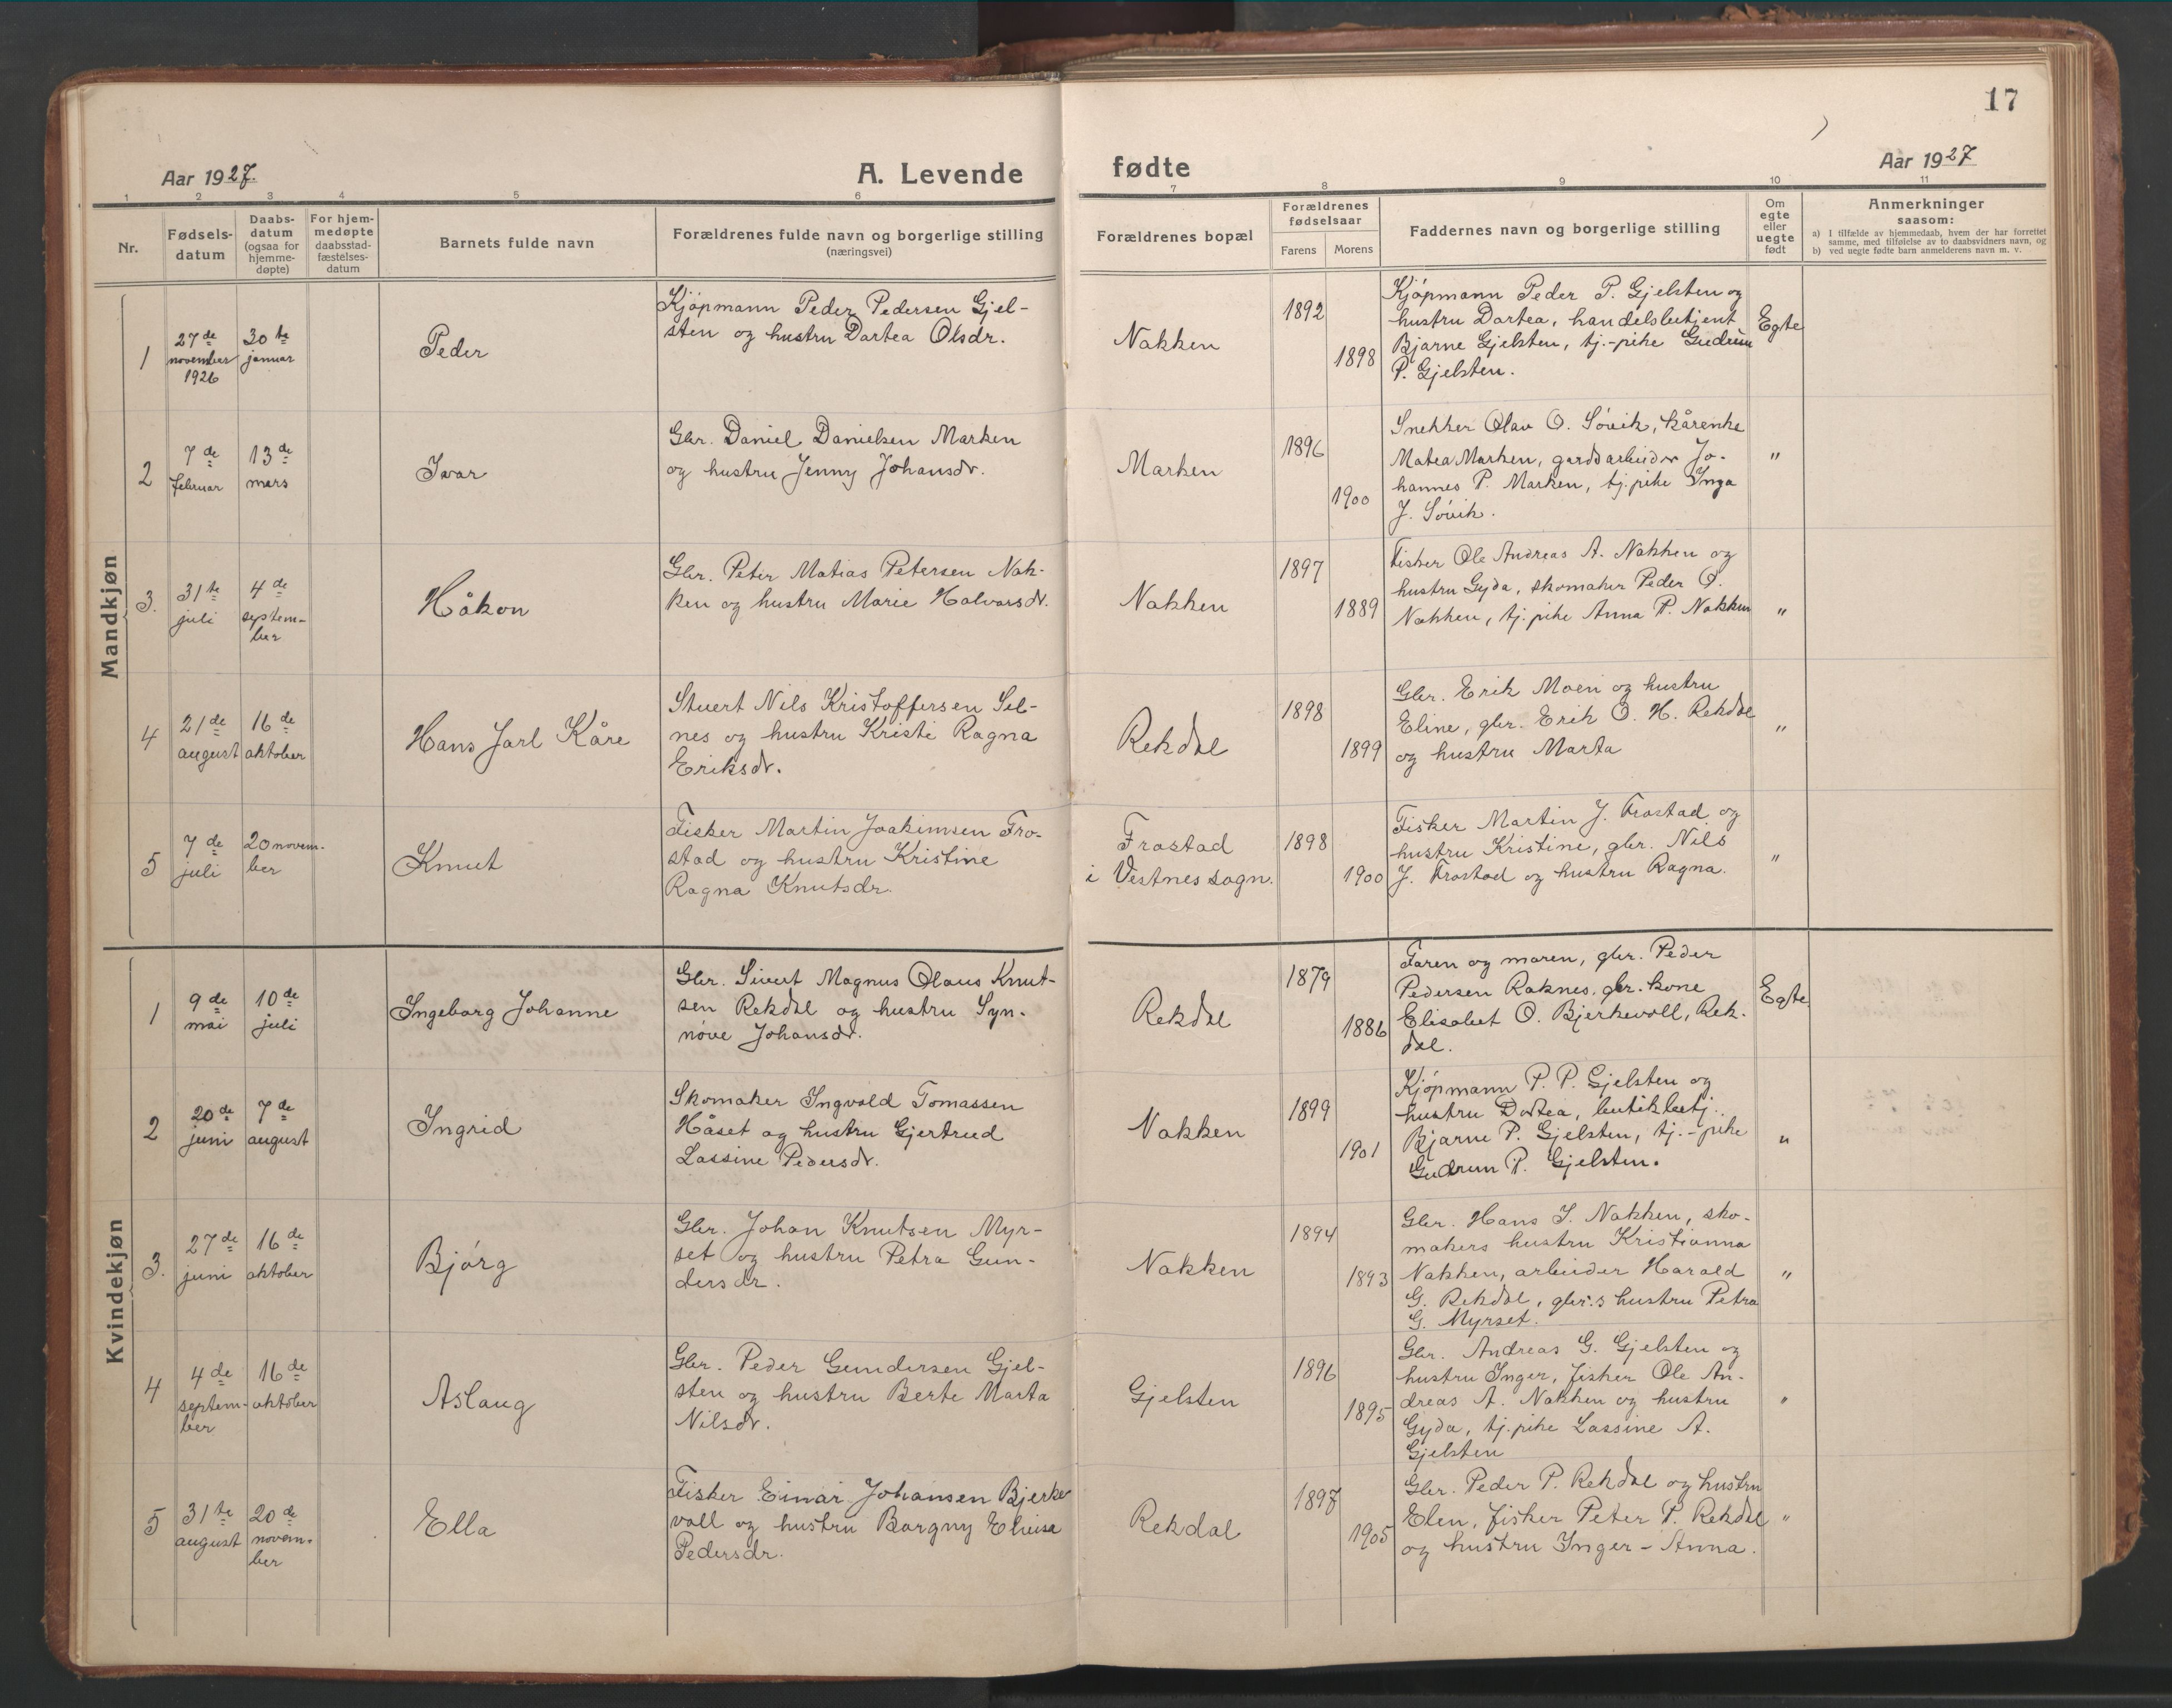 17
Aar 1927.
A. Levende
fødte
Aar 1927
1
2
3
4
5
6
7
8
9
10
11
Nr.
Fødsels-
datum
Daabs-
datum
(ogsaa for
hjemme-
døpte)
For hjem-
medøpte
daabsstad-
fæstelses-
datum
Barnets fulde navn
Forældrenes fulde navn og borgerlige stilling
(næringsvei)
Forældrenes bopæl
Forældrenes
fødselsaar
Farens
Morens
Faddernes navn og borgerlige stilling
Om
egte
eller
uegte
født
Anmerkninger
saasom:
a) I tilfælde av hjemmedaab, hvem der har forrettet
samme, med tilføielse av to daabsvidners navn, og
b) ved uegte fødte barn anmelderens navn m. v.
Mandkjøn
1
27de
november
1926
30te
januar
Peder
Kjøpmann Peder Pedersen Gjel-
sten og hustru Dartea Olsdr.
Nakken
1892
1898
Kjøpmann Peder P. Gjelsten og
hustru Dartea, handelsbetjent
Bjarne Gjelsten, tj.-pike Gudrun
P. Gjelsten.
Egte
2
7de
februar
13de
mars
Ivar
Gbr. Daniel Danielsen Marken
og hustru Jenny Johansdr.
Marken
1896
1900
Snekker Olav O. Søvik, kårenke
Matea Marken, gardsarbeider Jo-
hannes P. Marken, tj.pike Inga
J. Søvik.
"
3.
31te
juli
4de
septem-
ber
Håkon
Gbr. Peter Matias Petersen Nak-
ken og hustru Marie Halvorsdr.
Nakken
1897
1889
Fisker Ole Andreas A. Nakken og
hustru Gyda, skomaker Peder O.
Nakken, tj.pike Anna P. Nakken
"
4
21de
august
16de
oktober
Hans Jarl Kåre
Stuert Nils Kristoffersen Sel-
nes og hustru Kristi Ragna
Eriksdr.
Rekdal
1898
1899
Gbr. Erik Moen og hustru
Eline, gbr. Erik O. H. Rekdal
og hustru Marta
"
5
7de
juli
20 novem-
ber
Knut
Fisker Martin Joakimsen Fro-
stad og hustru Kristine
Ragna Knutsdr.
Frostad
i Vestnes sogn.
1898
1900
Fisker Martin J. Frostad og
hustru Kristine, gbr. Nils
J. Frostad og hustru Ragna.
"
Kvindekjøn
1
9de
mai
10de
juli
Ingeborg Johanne
Gbr. Sivert Magnus Olaus Knut-
sen Rekdal og hustru Syn-
nøve Johansdr.
Rekdal
1879
1886
Faren og moren, gbr. Peder
Pedersen Raknes, gbr. kone
Elisabet O. Bjerkevoll, Rek-
dal.
Egte
2
20de
juni
7de
august
Ingrid
Skomaker Ingvald Tomassen
Håset og hustru Gjertrud
Lassine Pedersdr.
Nakken
1899
1901
Kjøpmann P. P. Gjelsten og
hustru Dortea, butikbetj.
Bjarne P. Gjelsten, tj.-pike
Gudrun P. Gjelsten.
"
3.
27de
juni
16de
oktober
Bjørg
Gbr. Johan Knutsen Myr-
set og hustru Petra Gun-
dersdr.
Nakken
1894
1893
Gbr. Hans I. Nakken, sko-
makers hustru Kristianna
Nakken, arbeider Harald
G. Rekdal, gbr.s hustru Petra
G. Myrset.
"
4
4de
septem-
ber
16de
oktober
Aslaug
Gbr. Peder Gundersen Gjel-
sten og hustru Berte Marta
Nilsdr.
Gjelsten
1896
1895
Gbr. Andreas G. Gjelsten og
hustru Inger, fisker Ole An-
dreas A. Nakken og hustru
Gyda, tj.pike Lassine A.
Gjelsten
"
5
31te
august
20de
novem-
ber
Ella
Fisker Einar Johansen Bjerke
voll og hustru Borgny Elvisa
Pedersdr.
Rekdal
1897
1905
Gbr. Peder P. Rekdal og hustru
Elen, fisker Peter P. Rekdal
og hustru Inger-Anna.
"